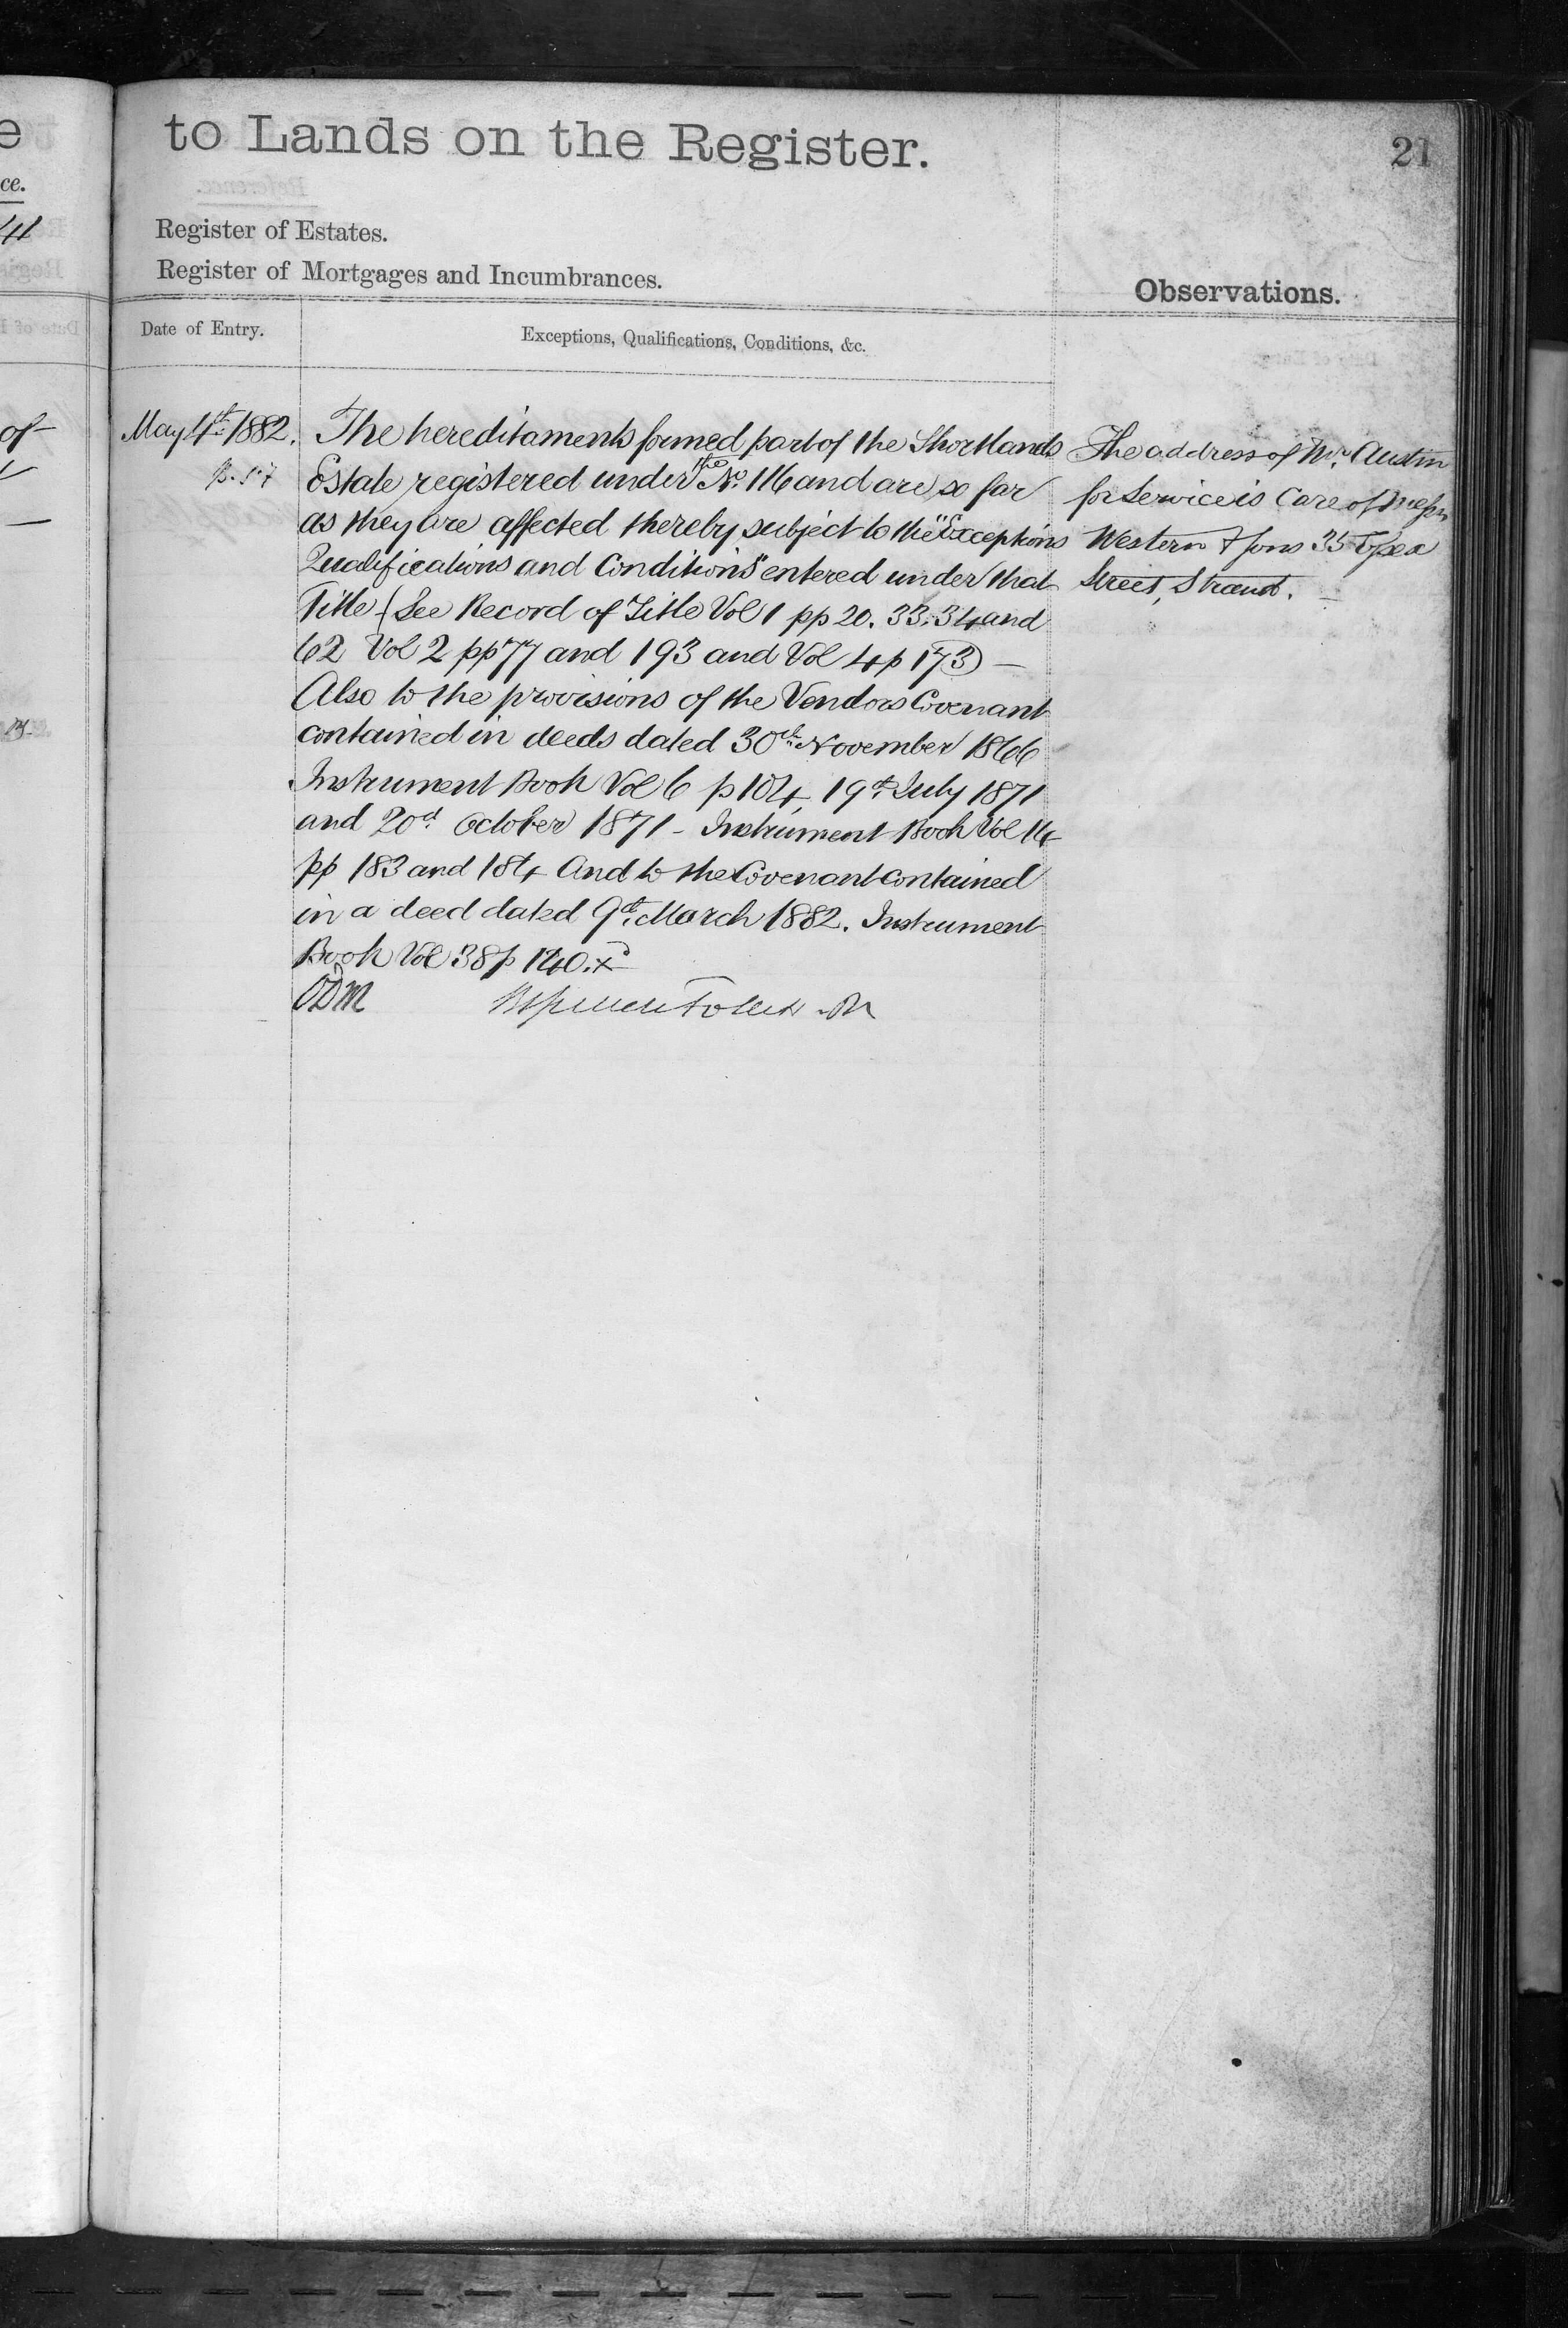 to Lands on the Register.
21
Register of Estates.
Register of Mortgages and Incumbrances.
Observations.
Date of Entry.
Exceptions, Qualifications, Conditions, &c.
May 4th 1882.
The hereditaments formed part of the Shortlands
Estate registered under the No. 116 and are so far
as they are affected thereby subject to the "Exceptions
Qualifications and Conditions" entered under that
Title (See Record of Title Vol 1 pp 20. 33. 34 and
62 Vol 2 pp 77 and 193 and Vol 4 p 173) —
Also to the provisions of the Vendors Covenant
contained in deeds dated 30th November 1866
Instrument Book Vol 6 p 104, 19th July 1871
and 20th October 1871 - Instrument Book Vol 14
pp 183 and 184 And to the Covenant contained
in a deed dated 9th March 1882. Instrument
Book Vol 38 p 140. x
ODM
The address of Mr. Austin
for Service is Care of Messrs
Western & Sons 35 Essex
Street, Strand. —